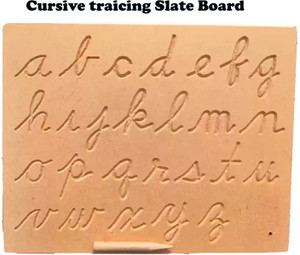 Cursive traicing Slate Board
a b c d e f g
h i j k l m n
o p q r s t u
v w x y z